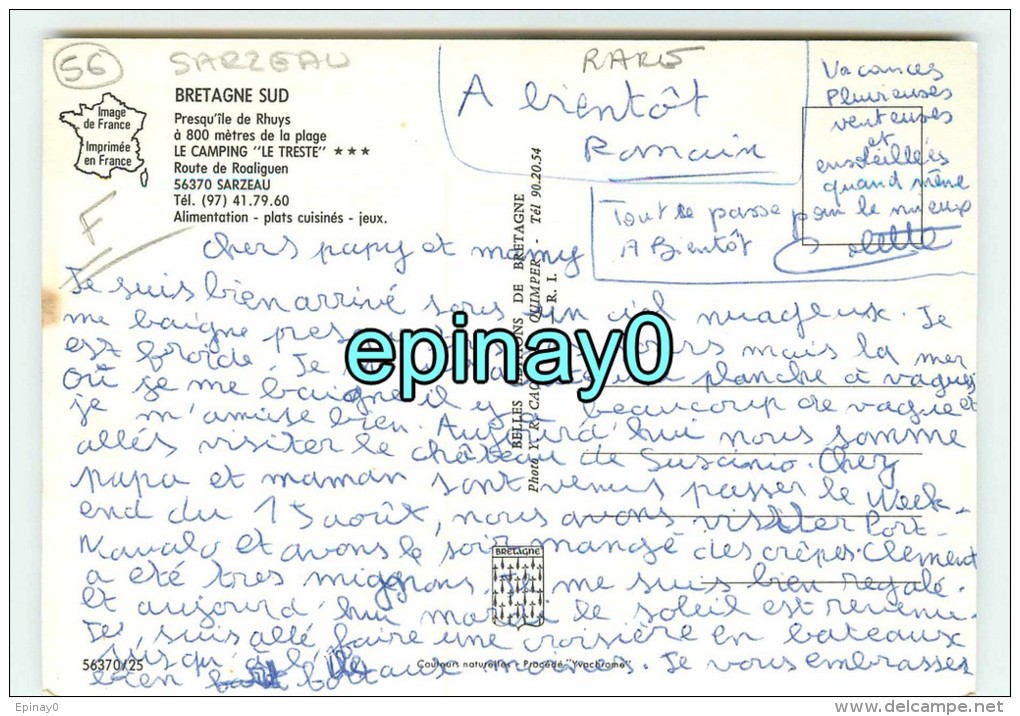 56
SARZEAU
RARE
Image
de France
Imprimée
en France
F
BRETAGNE SUD
Presqu'île de Rhuys
à 800 mètres de la plage
LE CAMPING "LE TRESTE" ★★★
Route de Roaliguen
56370 SARZEAU
Tél. (97) 41.79.60
Alimentation - plats cuisinés - jeux.
A bientôt
Romain
Vacances
Pluvieuses
venteuses
et
ensoleillées
quand même
Tout se passe pour le mieux
A Bientôt Colette
Chers papy et mamy
Je suis bien arrivé sous un ciel nuageux. Je
me baigne presque jours mais la mer
est froide. Je planche à vagues
où je me baigne il y a beaucoup de vague et
je m'amuse bien. Aujourd'hui nous somme
allés visiter le château de Suscinio. Chez
papa et maman sont venus passer le Week-
end du 15 août, nous avons visiter Port-
Navalo et avons le soir mangé des crêpes. Clément
a été très mignons. Je me suis bien régalé.
Et aujourd'hui mardi le soleil est revenu.
Je suis allé faire une croisière en bateaux
jusqu'à l'île aux moines. Je vous embrasses
BELLES EDITIONS DE BRETAGNE
Photo Y. R. CAOUDAL QUIMPER - Tél 90.20.54
R. I.
epinay0
BRETAGNE
56370/25
Couleurs naturelles - Procédé "Yvachrome"
Epinay0
delcampe.net